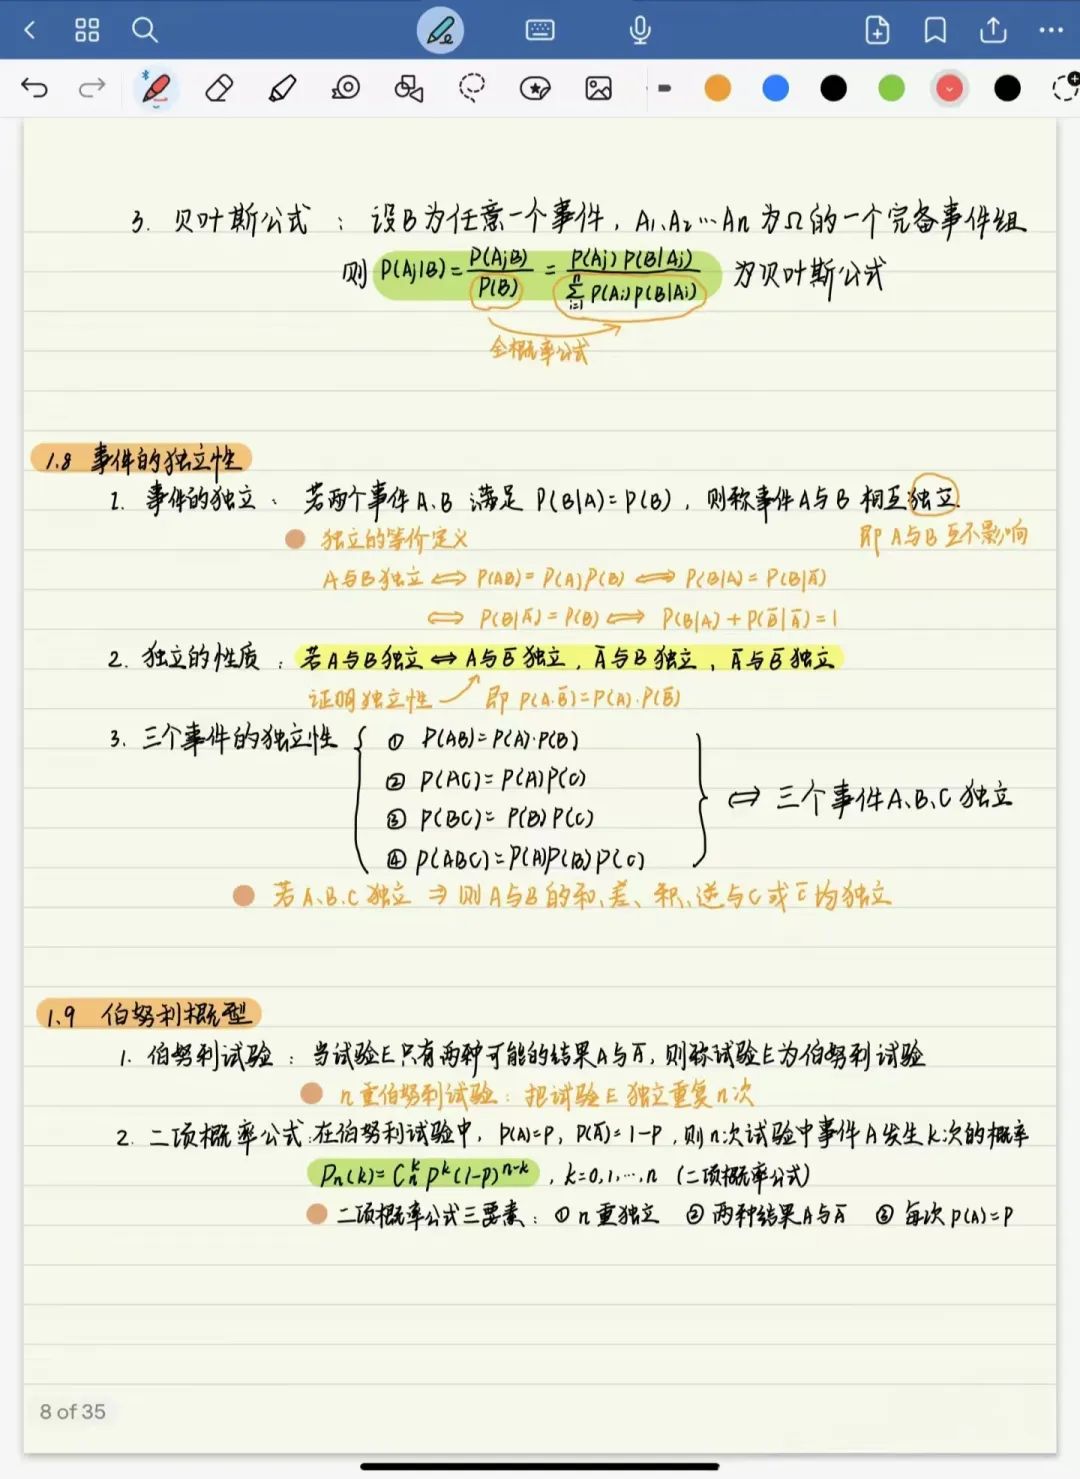 3. 贝叶斯公式 : 设B为任意一个事件, A₁、A₂…An 为Ω的一个完备事件组
则 P(Aj|B) = P(AjB)/P(B) = P(Aj)P(B|Aj)/∑ⁿᵢ₌₁P(Ai)P(B|Ai) 为贝叶斯公式
全概率公式
1.8 事件的独立性
1. 事件的独立 : 若两个事件A、B 满足 P(B|A)=P(B), 则称事件A与B 相互独立.
独立的等价定义 即A与B互不影响
A与B独立 ⟺ P(AB)=P(A)P(B) ⟺ P(B|A)=P(B|A̅)
⟺ P(B|A̅)=P(B) ⟺ P(B|A)+P(B̅|A̅)=1
2. 独立的性质 : 若A与B独立 ⟺ A与B̅独立, A̅与B独立, A̅与B̅独立
证明独立性 即 P(A·B̅)=P(A)·P(B̅)
3. 三个事件的独立性
① P(AB)=P(A)·P(B)
② P(AC)=P(A)P(C)
③ P(BC)=P(B)P(C)
④ P(ABC)=P(A)P(B)P(C)
⟺ 三个事件A、B、C独立
若A、B、C独立 ⇒ 则A与B的和、差、积、逆与C或C̅均独立
1.9 伯努利概型
1. 伯努利试验 : 当试验E只有两种可能的结果A与A̅, 则称试验E为伯努利试验
n重伯努利试验 : 把试验E独立重复n次
2. 二项概率公式: 在伯努利试验中, P(A)=P, P(A̅)=1-P, 则n次试验中事件A发生k次的概率
Pn(k)=Cₙᵏ Pᵏ(1-P)ⁿ⁻ᵏ, k=0,1,…,n (二项概率公式)
二项概率公式三要素 : ① n重独立 ② 两种结果A与A̅ ③ 每次P(A)=P
8 of 35